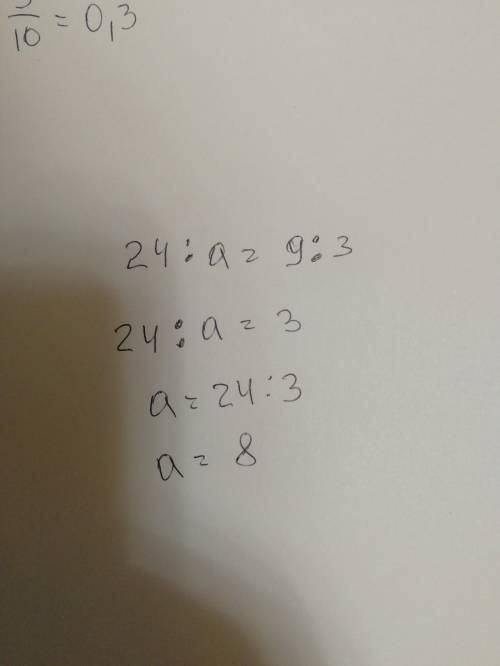 /10 = 0,3
24 : a = 9 : 3
24 : a = 3
a = 24 : 3
a = 8